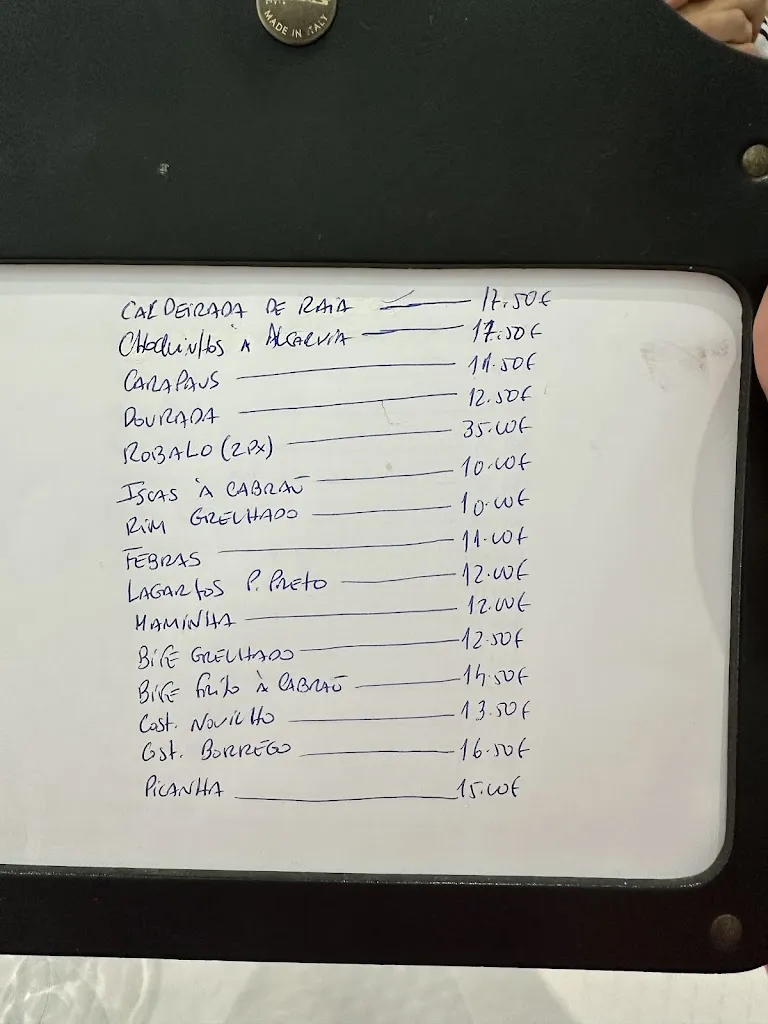 MADE IN ITALY
CALDEIRADA DE RAIA — 17.50€
CHOQUINHOS À ALGARVIA — 17.50€
CARAPAUS — 11.50€
DOURADA — 12.50€
ROBALO (2PX) — 35.00€
ISCAS À CABRAÛ — 10.00€
RIM GRELHADO — 10.00€
FEBRAS — 11.00€
LAGARTOS P. PRETO — 12.00€
MAMINHA — 12.00€
BIFE GRELHADO — 12.50€
BIFE FRITO À CABRAÛ — 14.50€
COST. NOVILHO — 13.50€
COST. BORREGO — 16.50€
PICANHA — 15.00€